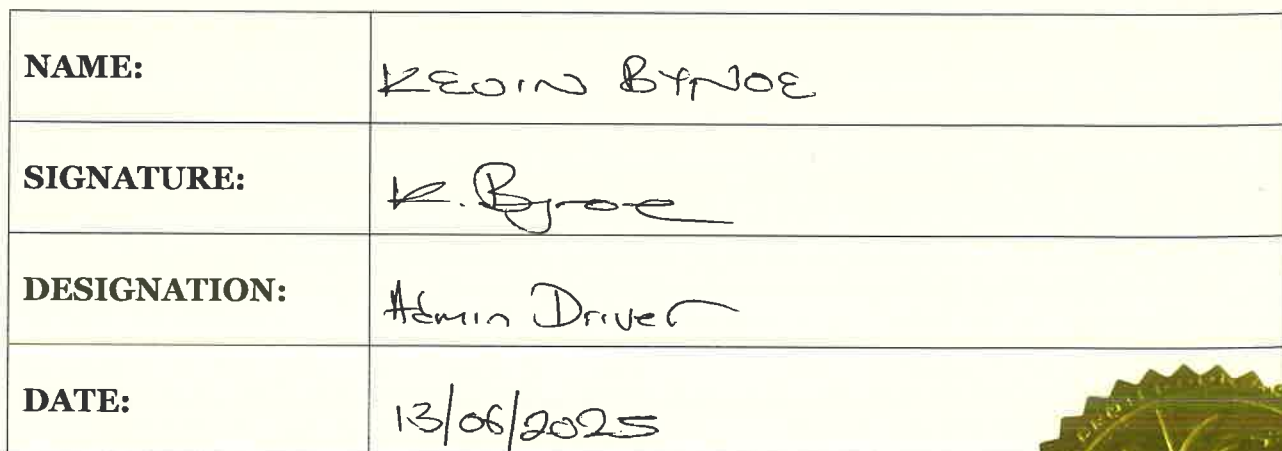 NAME: KEVIN BYNOE
SIGNATURE: K. Bynoe
DESIGNATION: Admin Driver
DATE: 13/06/2025